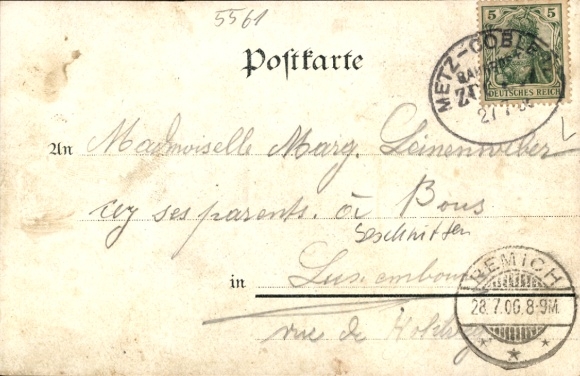 5561
Postkarte
5 5
DEUTSCHES REICH
METZ-COBLE
BAHNPOST
27 7 06
An Madmoiselle Marg. Leinenweber
ses parents. à Bous
Luxembourg
in
rue de
REMICH
28.7.06.8-9M.